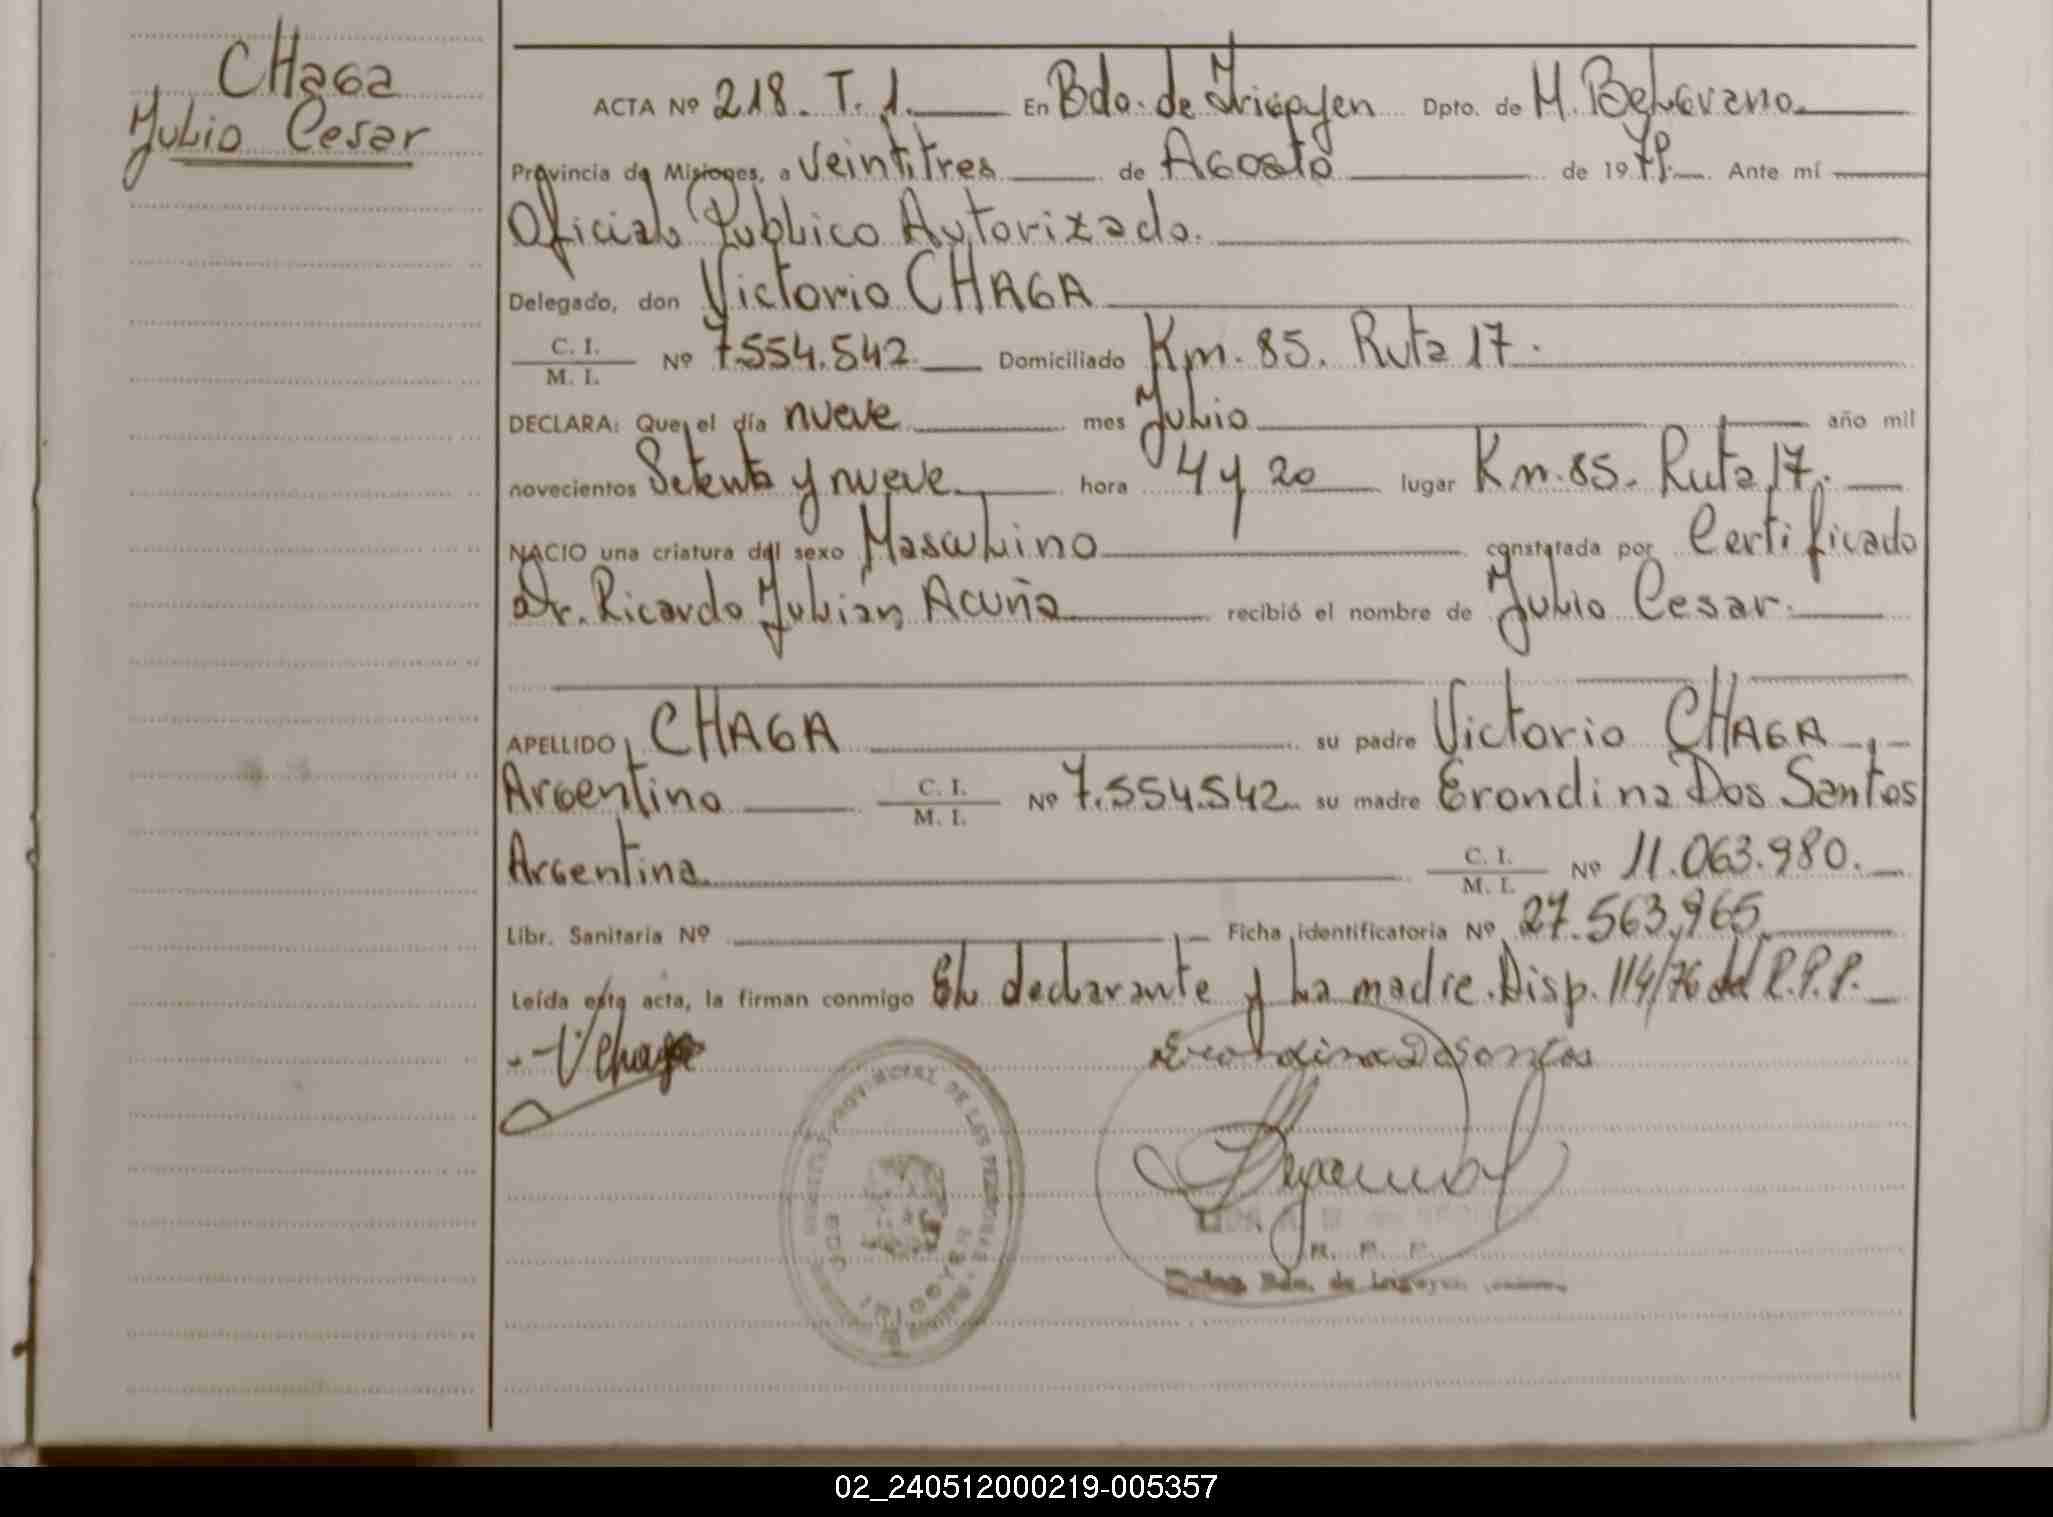 CHAGA
Julio Cesar
ACTA Nº 218. T. 1. En Bdo. de Irigoyen Dpto. de M. Belgrano.
Provincia de Misiones, a veintitres de Agosto de 1979. Ante mí
Oficial Publico Autorizado.
Delegado, don Victorio CHAGA
C. I.
M. I. Nº 7.554.542 Domiciliado Km. 85. Ruta 17.
DECLARA: Que el día nueve mes Julio año mil
novecientos Setenta y nueve hora 4 y 20 lugar Km. 85. Ruta 17.
NACIO una criatura del sexo Masculino constatada por Certificado
Dr. Ricardo Julián Acuña recibió el nombre de Julio Cesar.
APELLIDO CHAGA su padre Victorio CHAGA
Argentino C. I. M. I. Nº 7.554.542 su madre Erondina Dos Santos
Argentina C. I. M. I. Nº 11.063.980.
Libr. Sanitaria Nº Ficha identificatoria Nº 27.563.965
Leída esta acta, la firman conmigo El declarante y La madre. Disp. 114/76 del R.P.P.
V Chaga Erondina Dosantos
PROVINCIAL DE LAS PERSONAS
BDO. IRIGOYEN
R. P. P.
Bdo. de Irigoyen
02_240512000219-005357